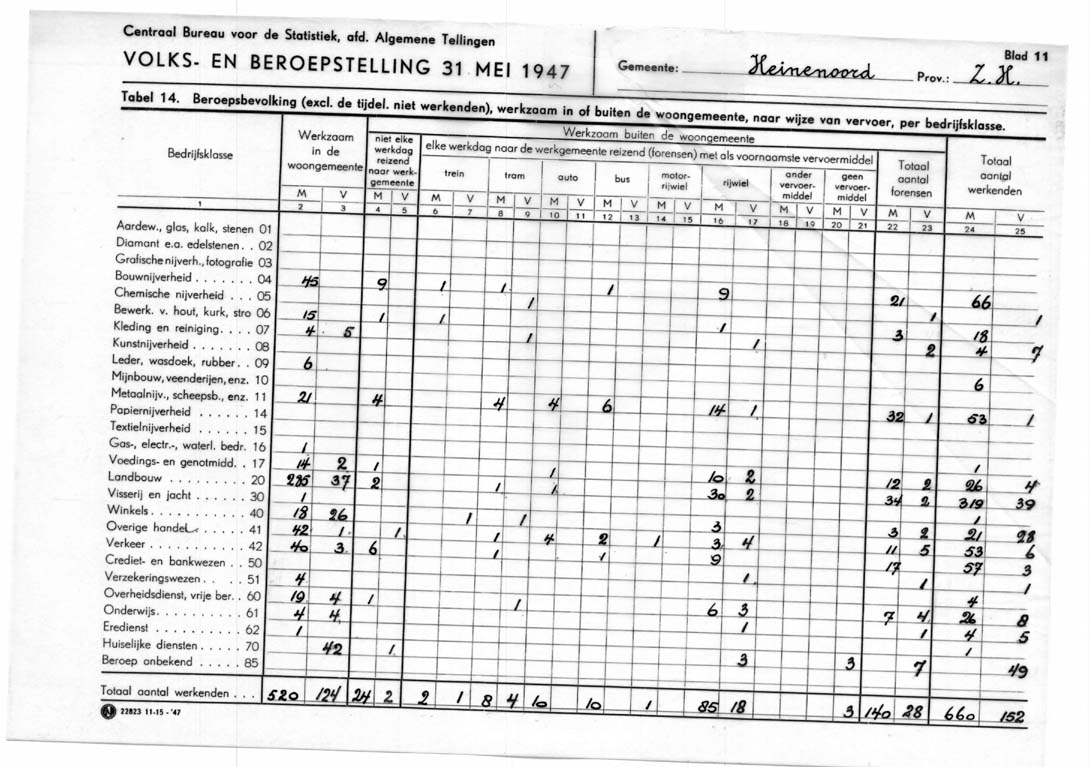 Centraal Bureau voor de Statistiek, afd. Algemene Tellingen
VOLKS- EN BEROEPSTELLING 31 MEI 1947
Gemeente: Heinenoord Prov.: Z.H.
Blad 11
Tabel 14. Beroepsbevolking (excl. de tijdel. niet werkenden), werkzaam in of buiten de woongemeente, naar wijze van vervoer, per bedrijfsklasse.
Bedrijfsklasse
Werkzaam in de woongemeente
Werkzaam buiten de woongemeente
niet elke werkdag reizend naar werkgemeente
elke werkdag naar de werkgemeente reizend (forensen) met als voornaamste vervoermiddel
trein tram auto bus motor-rijwiel rijwiel ander vervoer-middel geen vervoer-middel
Totaal aantal forensen
Totaal aantal werkenden
M V M V M V M V M V M V M V M V M V M V M V M V
1 2 3 4 5 6 7 8 9 10 11 12 13 14 15 16 17 18 19 20 21 22 23 24 25
Aardew., glas, kalk, stenen 01
Diamant e.a. edelstenen . . 02
Grafische nijverh., fotografie 03
Bouwnijverheid . . . . . . . 04 45 9 1 1 1 9 21 66
Chemische nijverheid . . . 05 1 1 1
Bewerk. v. hout, kurk, stro 06 15 1 1 1 3 18
Kleding en reiniging. . . . 07 4 5 1 1 2 4 7
Kunstnijverheid . . . . . . . 08
Leder, wasdoek, rubber. . 09 6 6
Mijnbouw, veenderijen, enz. 10
Metaalnijv., scheepsb., enz. 11 21 4 4 4 6 14 1 32 1 53 1
Papiernijverheid . . . . . . 14
Textielnijverheid . . . . . . 15
Gas-, electr.-, waterl. bedr. 16 1 1
Voedings- en genotmidd. . 17 14 2 1 1 10 2 12 2 26 4
Landbouw . . . . . . . . . 20 285 37 2 1 1 30 2 34 2 319 39
Visserij en jacht . . . . . . 30 1 1
Winkels . . . . . . . . . . 40 18 26 1 1 3 3 2 21 28
Overige handel . . . . . . . 41 42 1 1 1 4 2 1 3 4 11 5 53 6
Verkeer . . . . . . . . . . 42 40 3 6 1 1 9 17 57 3
Crediet- en bankwezen . . 50 1 1 1
Verzekeringswezen . . . . 51 4 4
Overheidsdienst, vrije ber. . 60 19 4 1 1 6 3 7 4 26 8
Onderwijs. . . . . . . . . . 61 4 4 1 1 4 5
Eredienst . . . . . . . . . 62 1 1
Huiselijke diensten . . . . . 70 42 1 3 3 7 49
Beroep onbekend . . . . . 85
Totaal aantal werkenden . . . 520 124 24 2 2 1 8 4 10 10 1 85 18 3 140 28 660 152
22823 11-15 - '47